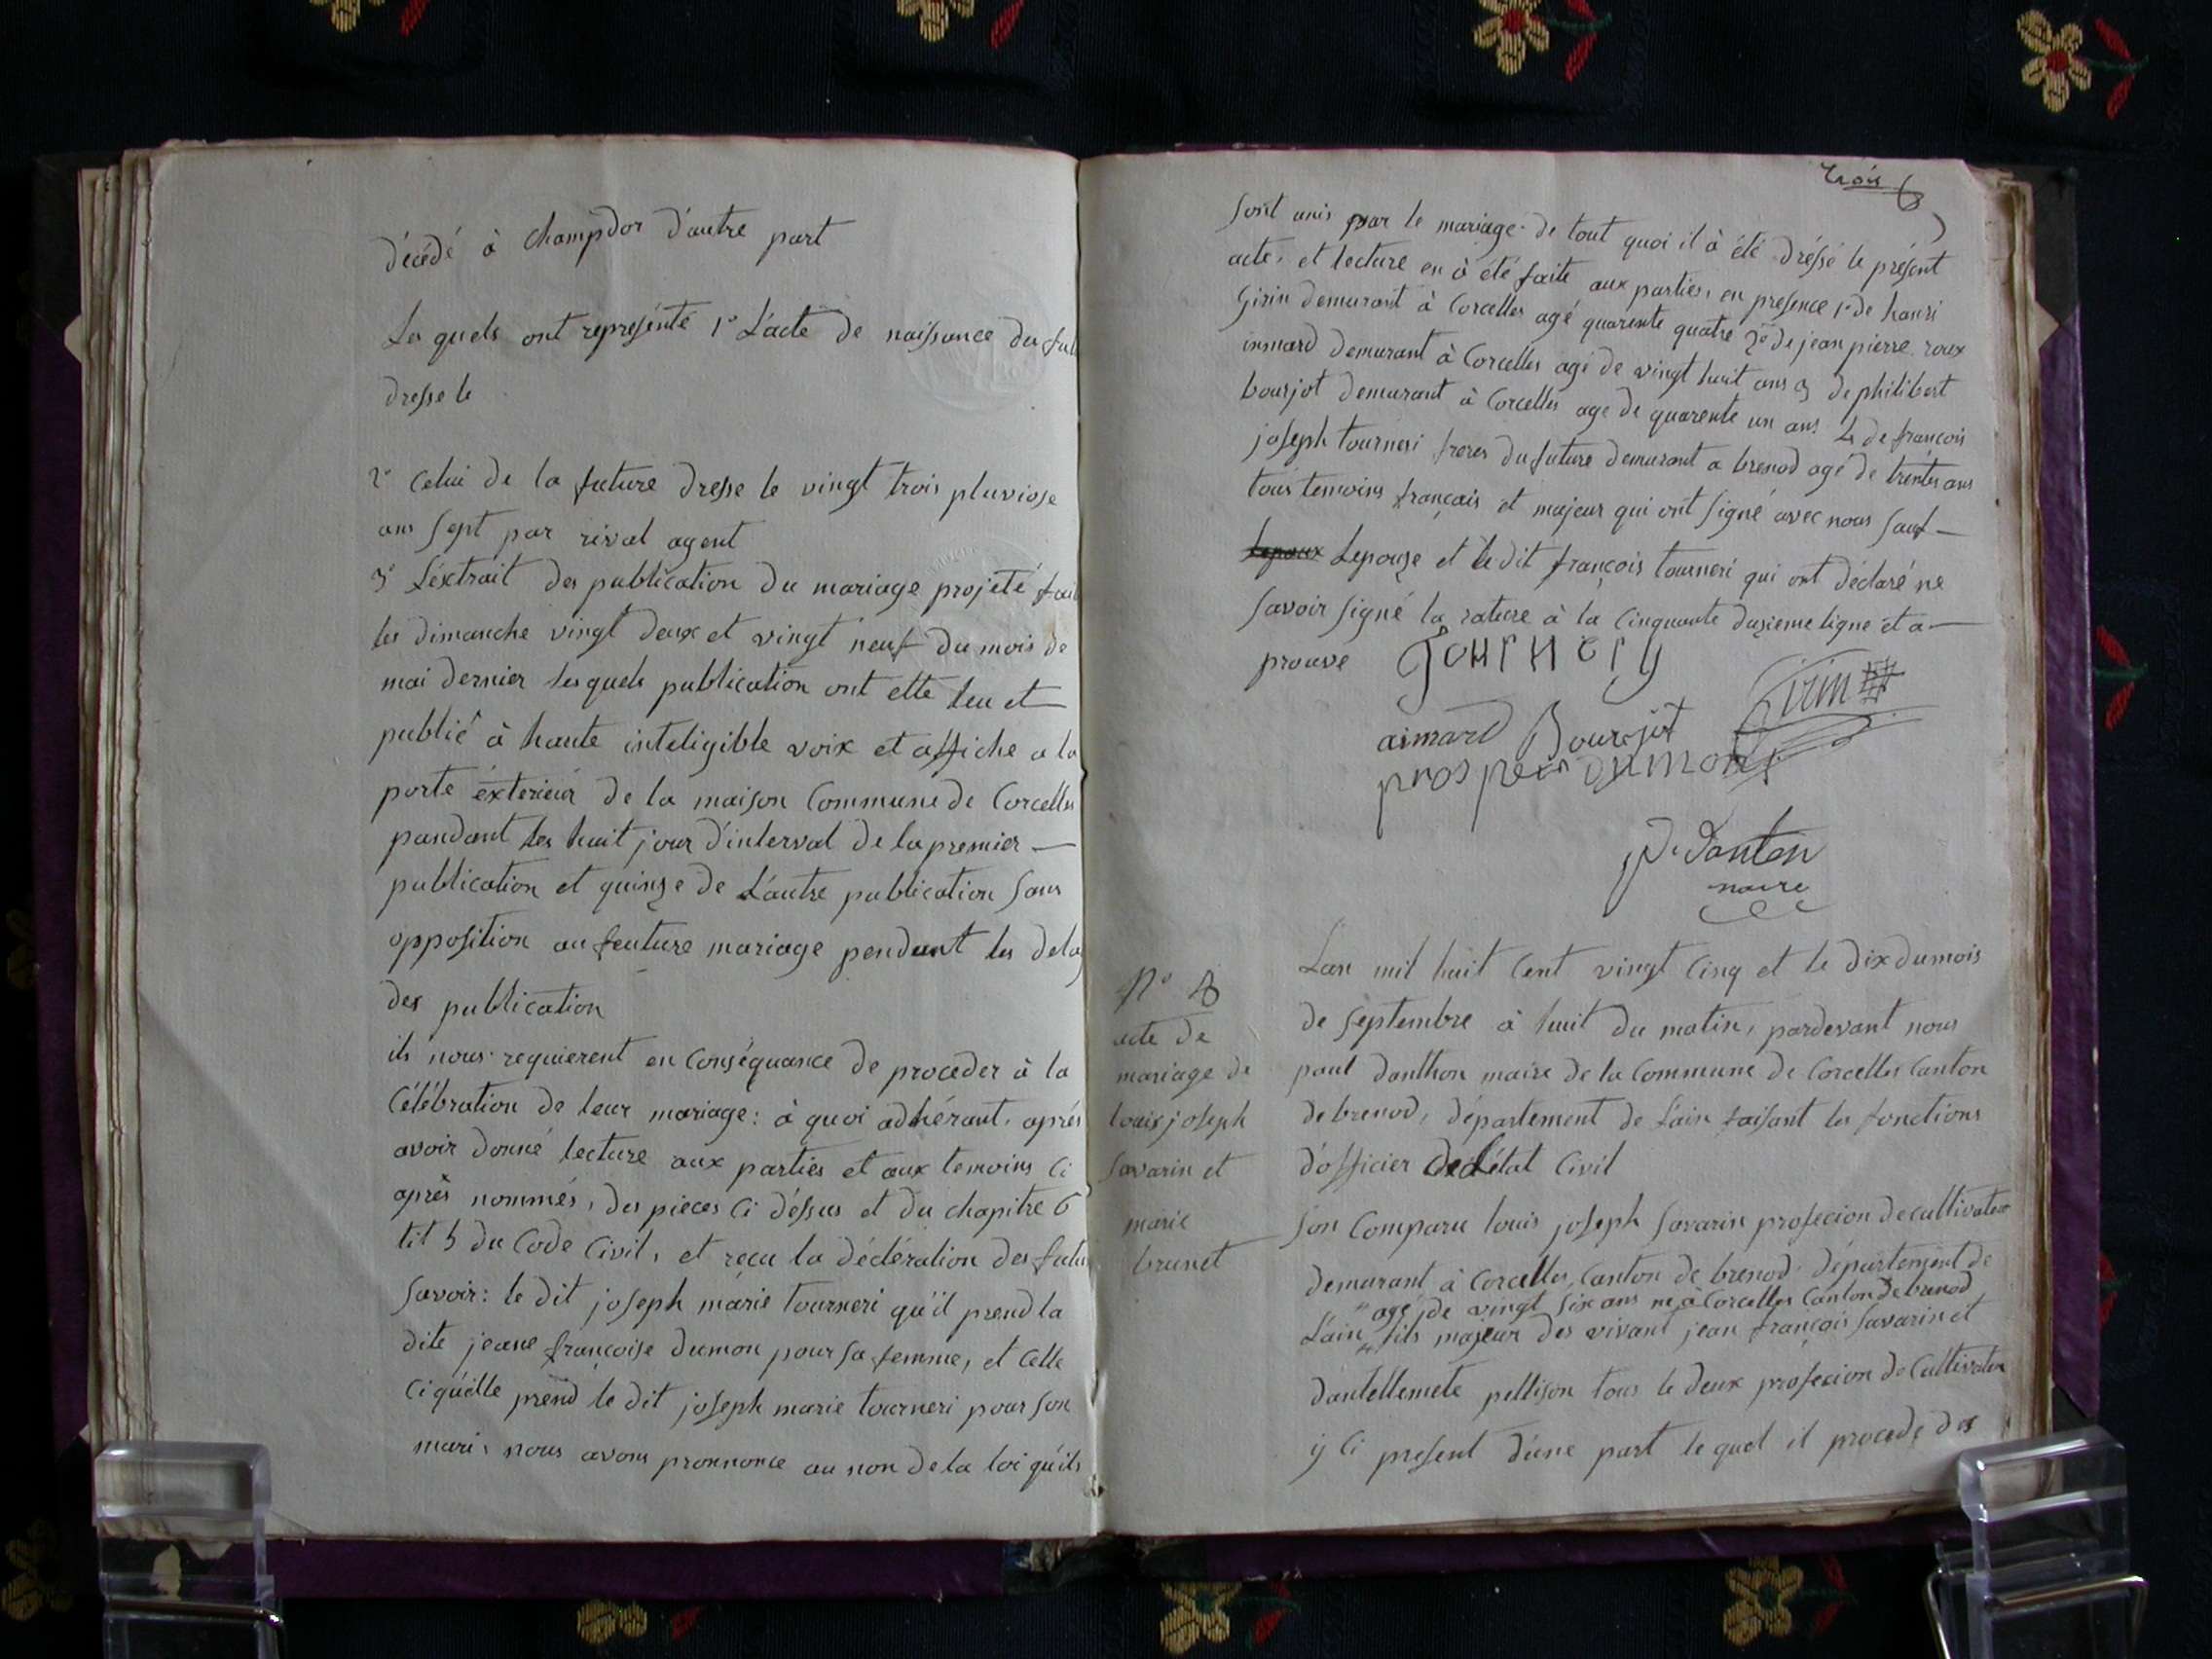 décédé à champdor d'autre part
Les quels ont représenté 1° L'acte de naissance du fut
dresse le
2° Celui de la future dresse le vingt trois pluviose
ans sept par rival agent
3° L'éxtrait des publication du mariage projeté fait
les dimanche vingt deux et vingt neuf du mois de
mai dernier les quels publication ont etté leu et
publié à haute inteligible voix et affiche a la
porte éxterieur de la maison Commune de Corcelles
pandant les huit jour d'interval de la premier
publication et quinze de L'autre publication sans
opposition au feuture mariage pendant les delay
des publication
ils nous requierent en Conséquance de proceder à la
Célébration de leur mariage: à quoi adhérant, aprés
avoir donné lecture aux parties et aux temoins Ci
aprés nommés, des pieces Ci déssus et du chapitre 6
tit 5 du Code Civil, et reçu la déclération des futu
Savoir: le dit joseph marie tourneri qu'il prend la
dite jeane françoise dumon pour sa femme, et Celle
Ci qu'elle prend le dit joseph marie tourneri pour son
mari, nous avons pronnonce au non de la loi qu'ils
trois
sont unis par le mariage. de tout quoi il à été dréssé le présent
acte, et lecture en à été faite aux parties, en presence 1° de hanri
Girin demurant à Corcelles agé quarente quatre 2° de jean pierre roux
inmard demurant à Corcelles agé de vingt huit ans 3 de philibert
bourjot demurant à Corcelles age de quarente un ans 4 de françois
joseph tourneri freres du future demurant a brenod agé de trentes ans
tous temoins français et majeur qui ont signé avec nous sauf
Lepoux Lepouze et le dit françois tourneri qui ont déclaré ne
savoir signé la rature à la Cinquante duzieme ligne et a
prouve
Tournery
Girin
aimard Bourjot
prosper dumont
P. Danton
maire
N° 8
acte de
mariage de
louis joseph
Savarin et
marie
brunet
L'an mil huit Cent vingt Cinq et le dix du mois
de septembre à huit du matin, pardevant nous
paul danthon maire de la Commune de Corcelles Canton
de brenod, département de L'ain faisant les fonctions
d'officier de L'état Civil
Son Comparu louis joseph Savarin profecion de cultivateur
demurant à Corcelles, Canton de brenod département de
" agé de vingt six ans né à Corcelles Canton de brenod
L'ain " fils majeur des vivant jean françois Savarin et
dantellemete pellison tous le deux profecion de Cultivateu
y Ci present d'une part le quel il procede des